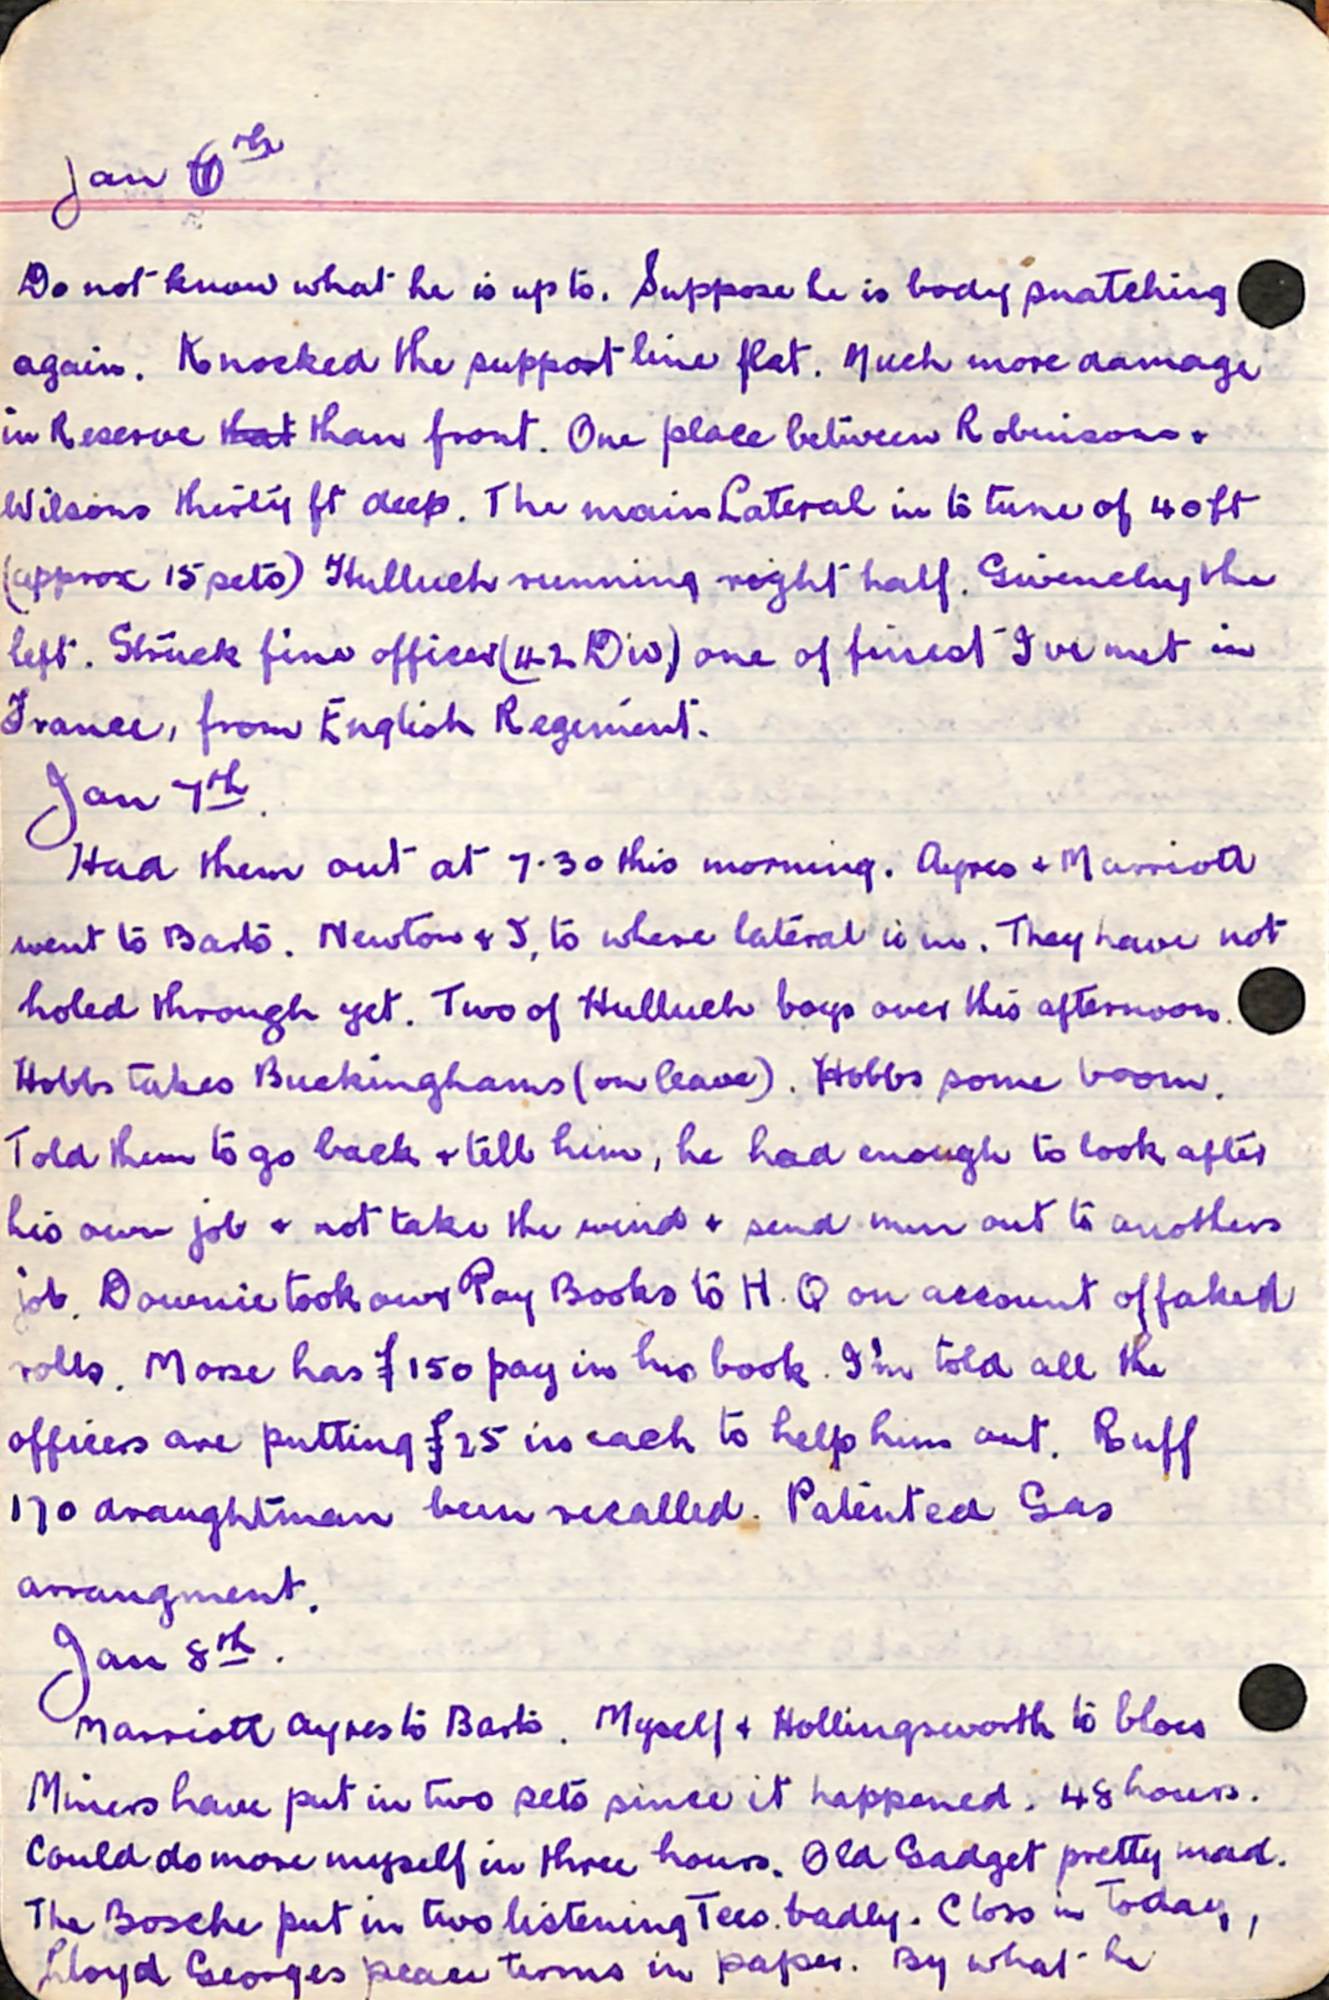 Jan 6th
Do not know what he is up to. Suppose he is body snatching
again. Knocked the support line flat. Much more damage
in Reserve that than front. One place between Robinsons &
Wilsons thirty ft deep. The main Lateral in to tune of 40 ft
(approx 15 sets) Hulluch running right half. Givenchy the
left. Struck fine officer (42 Div) one of finest I've met in
France, from English Regiment.
Jan 7th.
Had them out at 7.30 this morning. Ayres & Marriott
went to Barts. Newton & I, to where lateral is in. They have not
holed through yet. Two of Hulluch boys over this afternoon.
Hobbs takes Buckinghams (on leave). Hobbs some boom.
Told them to go back & tell him, he had enough to look after
his own job & not take the wind & send men out to anothers
job. Downie took our Pay Books to H.Q on account of faked
rolls. Morse has £150 pay in his book. I'm told all the
officers are putting £25 in each to help him out. Ruff
170 draughtman been recalled. Patented Gas
arrangment.
Jan 8th.
Marriott Ayres to Barts. Myself & Hollingsworth to blow
Miners have put in two sets since it happened. 48 hours.
Could do more myself in three hours. Old Gadget pretty mad.
The Bosche put in two listening Tees badly. Closs in today,
Lloyd Georges peace terms in paper. By what he